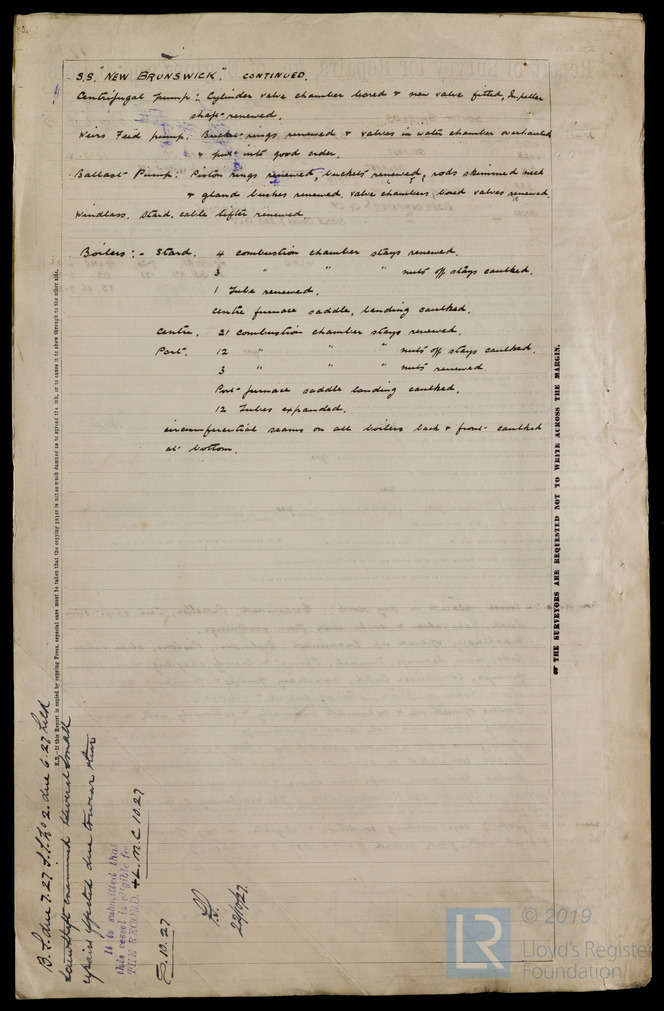 S.S. "NEW BRUNSWICK". CONTINUED.
Centrifugal pump: Cylinder valve chamber bored & new valve fitted, Impeller
shaft renewed.
Weirs Feed pump: Bucket rings renewed & valves in water chamber overhauled
& put into good order.
Ballast Pump: Piston rings renewed, buckets renewed, rods skimmed neck
& gland bushes renewed, valve chambers, bored valves renewed.
Windlass. Stard. cable lifter renewed.
Boilers:- Stard. 4 combustion chamber stays renewed.
3 " " " nuts off stays caulked.
1 Tube renewed.
Centre furnace saddle, landing caulked.
Centre. 21 combustion chamber stays renewed.
Port. 12 " " " nuts off stays caulked.
3 " " " nuts renewed
Port furnace saddle landing caulked.
12 Tubes expanded.
circumferential seams on all boilers back & front caulked
at bottom.
THE SURVEYORS ARE REQUESTED NOT TO WRITE ACROSS THE MARGIN.
N.B.—If this Report is copied by copying Press, especial care must be taken that the copying paper is not so much damped as to spread the ink, or to cause it to show through to the other side.
B.S. due 7.27 S.S. No 2. due 6.27 held
Screwshaft examined several small
repairs effected due to wear & tear
It is submitted that
this vessel is eligible for
THE RECORD. + L.M.C 10.27
S. 10.27
22/10/27
LR
© 2019
Lloyd's Register
Foundation